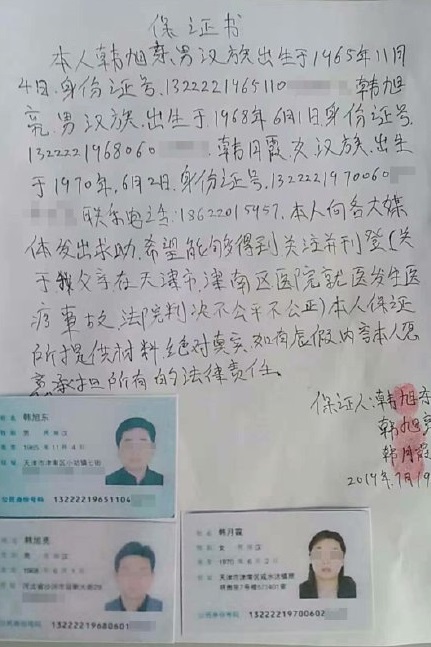 保证书
本人韩旭东,男汉族,出生于1965年11月
4日,身份证号,1322221965110 韩旭
亮,男汉族,出生于1968年6月1日身份证号
1322221968060 韩月霞,女汉族,出生
于1970年,6月2日,身份证号,1322221970060
联系电话:13622015957,本人向各大媒
体发出求助,希望能够得到关注并刊登(关
于我父亲在天津市津南区医院就医发生医
疗事故,法院判决不公平不公正)本人保证
所提供材料绝对真实,如有虚假内容本人愿
意承担所有的法律责任。
保证人:韩旭东
韩旭亮
韩月霞
韩旭东
男
1965年11月4日
天津市津南区小站镇
公民身份号码 13222219651104
韩旭亮
男
公民身份号码 13222219680601
韩月霞
女
1970年6月2日
天津市津南区咸水沽镇
公民身份号码 13222219700602